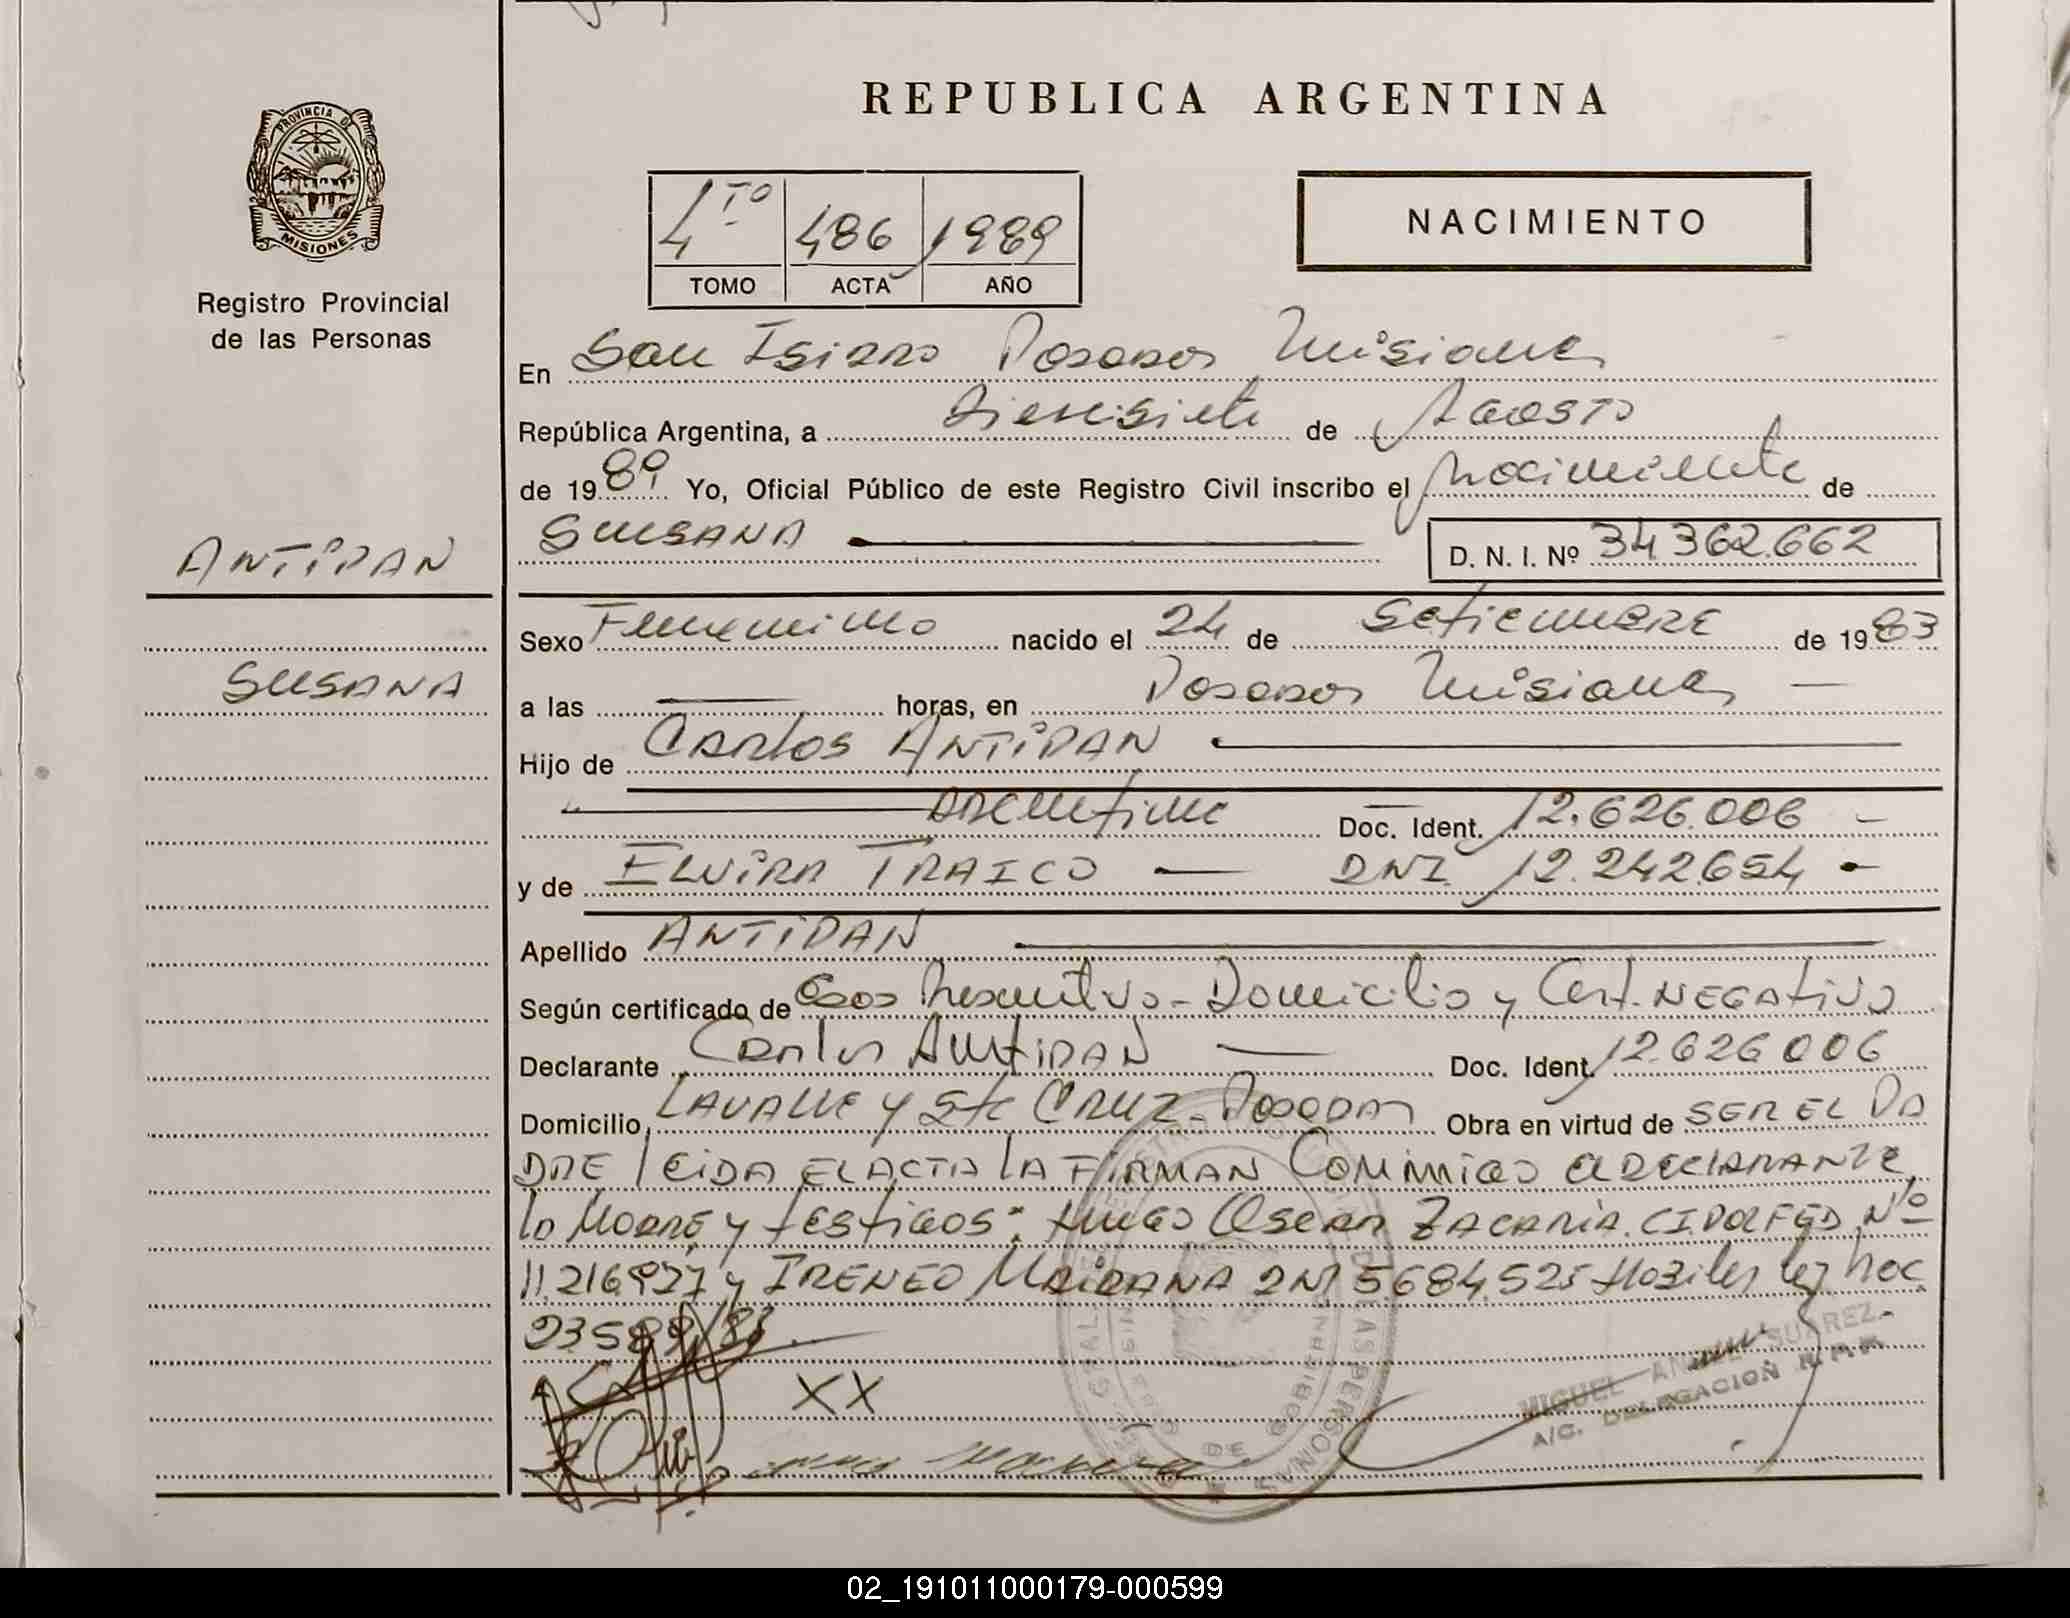 REPUBLICA ARGENTINA
PROVINCIA DE
MISIONES
Registro Provincial
de las Personas
4to 486 1989
TOMO ACTA AÑO
NACIMIENTO
En San Isidro Posadas Misiones
República Argentina, a diecisiete de Agosto
de 1989 Yo, Oficial Público de este Registro Civil inscribo el nacimiento de
SUSANA D. N. I. Nº 34.362.662
ANTIPAN
SUSANA
Sexo Femenino nacido el 24 de Setiembre de 1983
a las — horas, en Posadas Misiones —
Hijo de Carlos ANTIPAN
Argentino Doc. Ident. 12.626.006 —
y de ELVIRA TRAICO — DNI 12.242.654
Apellido ANTIPAN
Según certificado de Edad Presuntiva - Domicilio y Cert. NEGATIVO
Declarante Carlos ANTIPAN — Doc. Ident. 12.626.006
Domicilio LAVALLE y Sta CRUZ - Posadas Obra en virtud de SER EL PA
DRE leida EL ACTA LA FIRMAN Conmigo el DECLARANTE
la Madre y testigos: Hugo Oscar ZACARIA. C.I. POL FED Nº
11.216.927 y IRENEO MAIDANA DNI 5.684.525 ley Nac.
23
XX
MIGUEL ANGEL SUAREZ
A/C. DELEGACION R. P. P.
02_191011000179-000599